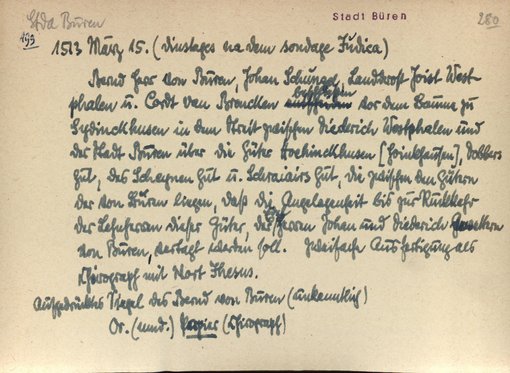 Stda Büren
Stadt Büren
280
199
1513 März 15. (dinstages na dem sondage Judica)
Bernd Herr von Büren, Johan Schungel, Landdrost Joist West-
phalen u. Cordt van Brencken beschlossen vor dem Baume zu
Sydinckhusen in dem Streit zwischen Diederich Westphalen und
der Stadt Büren über die Güter Hoekinckhusen [Hoinkhausen], Dobbers
Gut, des Schepen Gut u. Gut, die zwischen den Gütern
der von Büren liegen, daß die Angelegenheit bis zur Rückkehr
der Lehnherren dieser Güter, der Herren Johan und Diederich Gevettern
von Büren, vertagt werden soll. Zweifach Ausfertigung als
Chirograph mit Wort Jhesus.
Aufgedrücktes Siegel des Bernd von Büren (unkenntlich)
Or. (mnd.) Papier (Chirograph)